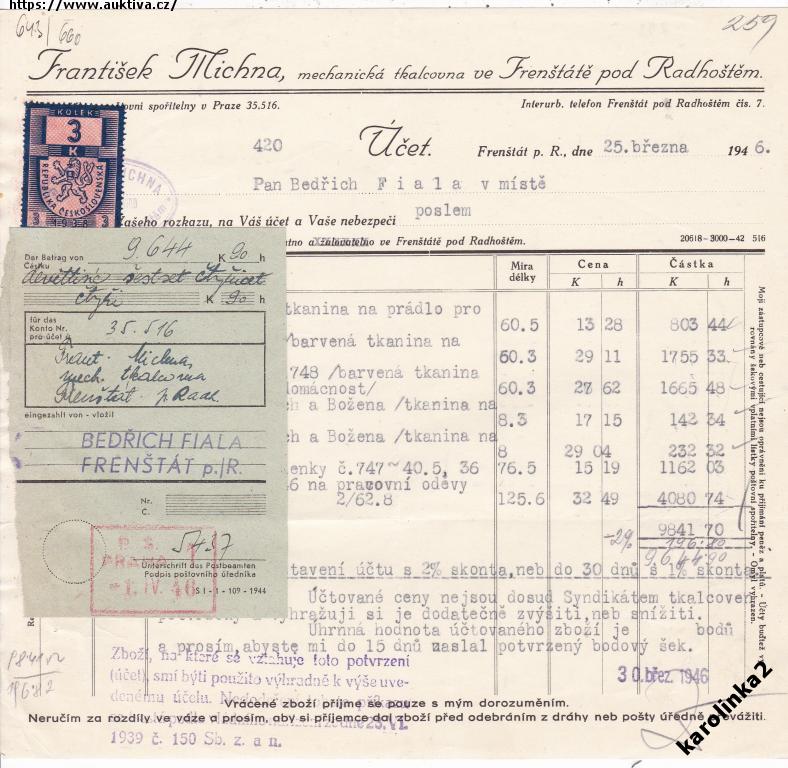 https://www.auktiva.cz/
643/660
259
František Michna, mechanická tkalcovna ve Frenštátě pod Radhoštěm.
spořitelny v Praze 35.516.
Interurb. telefon Frenštát pod Radhoštěm čís. 7.
KOLEK
3
K
REPUBLIKA ČESKOSLOVENSKÁ
1938
420
Účet.
Frenštát p. R., dne 25. března 1946.
Pan Bedřich Fiala v místě
poslem
rozkazu, na Váš účet a Vaše nebezpečí
ve Frenštátě pod Radhoštěm.
20618-3000-42 516
Míra délky
Cena
K h
Částka
K h
tkanina na prádlo pro
60.5 13 28 803 44
/barvená tkanina na
60.3 29 11 1755 33
748 /barvená tkanina
domácnost/ 60.3 27 62 1665 48
a Božena /tkanina na
8.3 17 15 142 34
a Božena /tkanina na
8 29 04 232 32
č.747 40.5, 36 76.5 15 19 1162 03
na pracovní oděvy
2/62.8 125.6 32 49 4080 74
9841 70
-2% 196.80
9644.90
účtu s 2% skonta, neb do 30 dnů s 1% skonta
Účtované ceny nejsou dosud Syndikátem tkalcoven
vyhražuji si je dodatečně zvýšiti, neb snížiti.
Úhrnná hodnota účtovaného zboží je bodů
a prosím, abyste mi do 15 dnů zaslal potvrzený bodový šek.
30. břez. 1946
Zboží, na které se vztahuje toto potvrzení
(účet), smí býti použito výhradně k výše uve-
denému účelu.
1939 č. 150 Sb. z. a n.
Vrácené zboží přijme se pouze s mým dorozuměním.
Neručím za rozdíly ve váze a prosím, aby si příjemce dal zboží před odebráním z dráhy neb pošty úředně převážiti.
Moji zástupcové neb cestující nejsou oprávněni ku přijímání peněz a platů. - Účty buďtež
rovnány šekovými vplatními lístky poštovní spořitelny. - Omyl vyhrazen.
Der Betrag von
Částku
9.644 K 90 h
šestset čtyřicet
čtyři K 90 h
für das
Konto Nr.
pro účet č.
35.516
Frant. Michna
mech. tkalcovna
Frenštát p. Radh.
eingezahlt von - vložil
BEDŘICH FIALA
FRENŠTÁT p./R.
Nr.
Č.
5437
Unterschrift des Postbeamten
Podpis poštovního úředníka
P. S.
PRAHA 1
-1. IV. 46
SI-1-109-1944
karolinka2